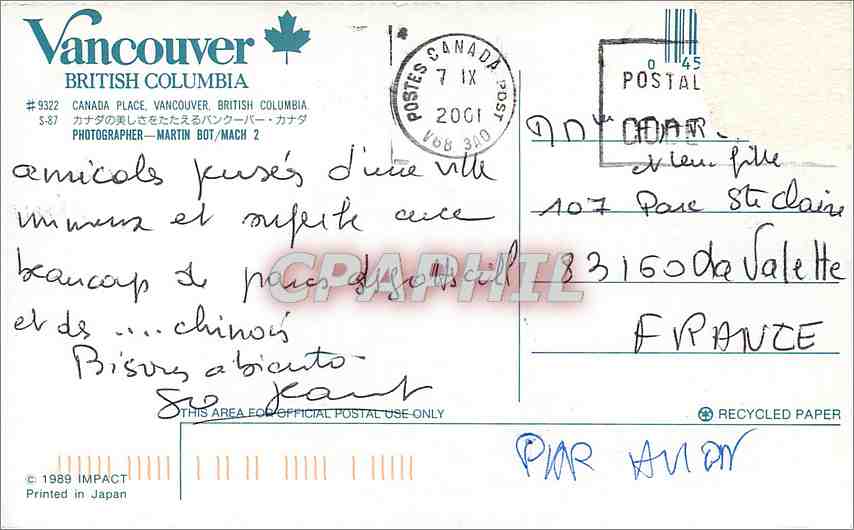 Vancouver
BRITISH COLUMBIA
#9322 CANADA PLACE, VANCOUVER, BRITISH COLUMBIA.
S-87 カナダの美しさをたたえるバンクーバー・カナダ
PHOTOGRAPHER—MARTIN BOT/MACH 2
POSTES CANADA POST
7 IX
2001
V6B 3A0
0 45
POSTAL
CODE
amicales d'une ville
immense et superbe avec
beaucoup de parcs
et de ....chinois
Bisous a bientôt
107 Parc Ste Claire
83160 La Valette
FRANCE
CPAPHIL
THIS AREA FOR OFFICIAL POSTAL USE ONLY
RECYCLED PAPER
PAR AVION
© 1989 IMPACT
Printed in Japan